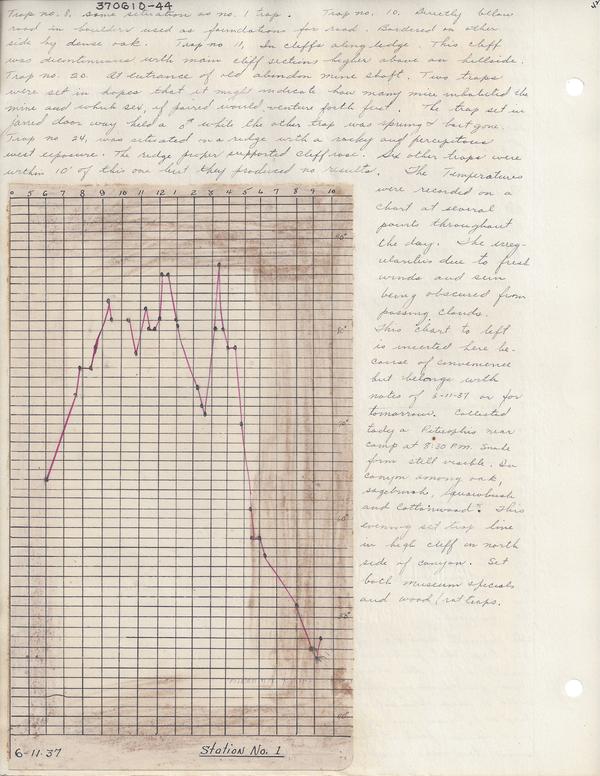 370610-44
Trap no. 8, same situation as no. 1 trap. Trap no. 10. Directly below
road in boulders used as foundations for road. Bordered on other
side by dense oak. Trap no. 11, In cliffs along ledge. This cliff
was discontinuous with main cliff sections higher above on hillside.
Trap no. 20. At entrance of old abandon mine shaft. Two traps
were set in hopes that it might indicate how many mice inhabited the
mine and which sex, if paired would venture forth first. The trap set in
door way held a ♂ while the other trap was sprung & bait gone.
Trap no. 24, was situated on a ridge with a rocky and
west exposure. The ridge proper supported cliff rose. Six other traps were
within 10' of this one but they produced no results. The Temperatures
were recorded on a
chart at several
points throughout
the day. The irreg-
ularities due to fresh
winds and sun
being obscured from
passing clouds.
This chart to left
is inserted here be-
cause of convenience
but belongs with
notes of 6-11-37 or for
tomorrow. Collected
today a near
camp at 8:30 P.M. Snake
form still visible. In
canyon among oak,
sagebrush, squawbush
and Cottonwood. This
evening set trap line
in high cliff on north
side of canyon. Set
both museum specials
and wood/rat traps.
5 6 7 8 9 10 11 12 1 2 3 4 5 6 7 8 9 10
90°
80°
70°
60°
50°
40°
6-11-37
Station No. 1